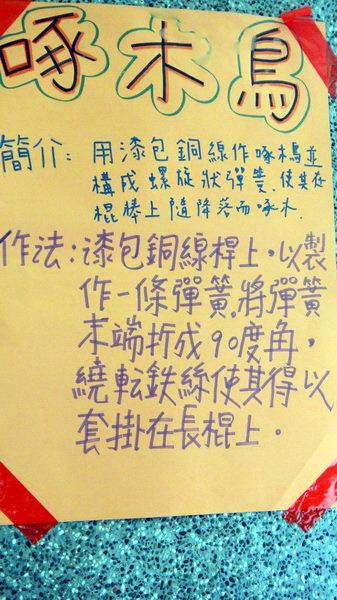 啄木鳥
簡介：用漆包銅線作啄木鳥並
構成螺旋狀彈簧，使其在
棍棒上隨降落而啄木．
作法：漆包銅線桿上，以製
作一條彈簧，將彈簧
末端折成90度角，
繞転鉄絲使其得以
套掛在長棍上。